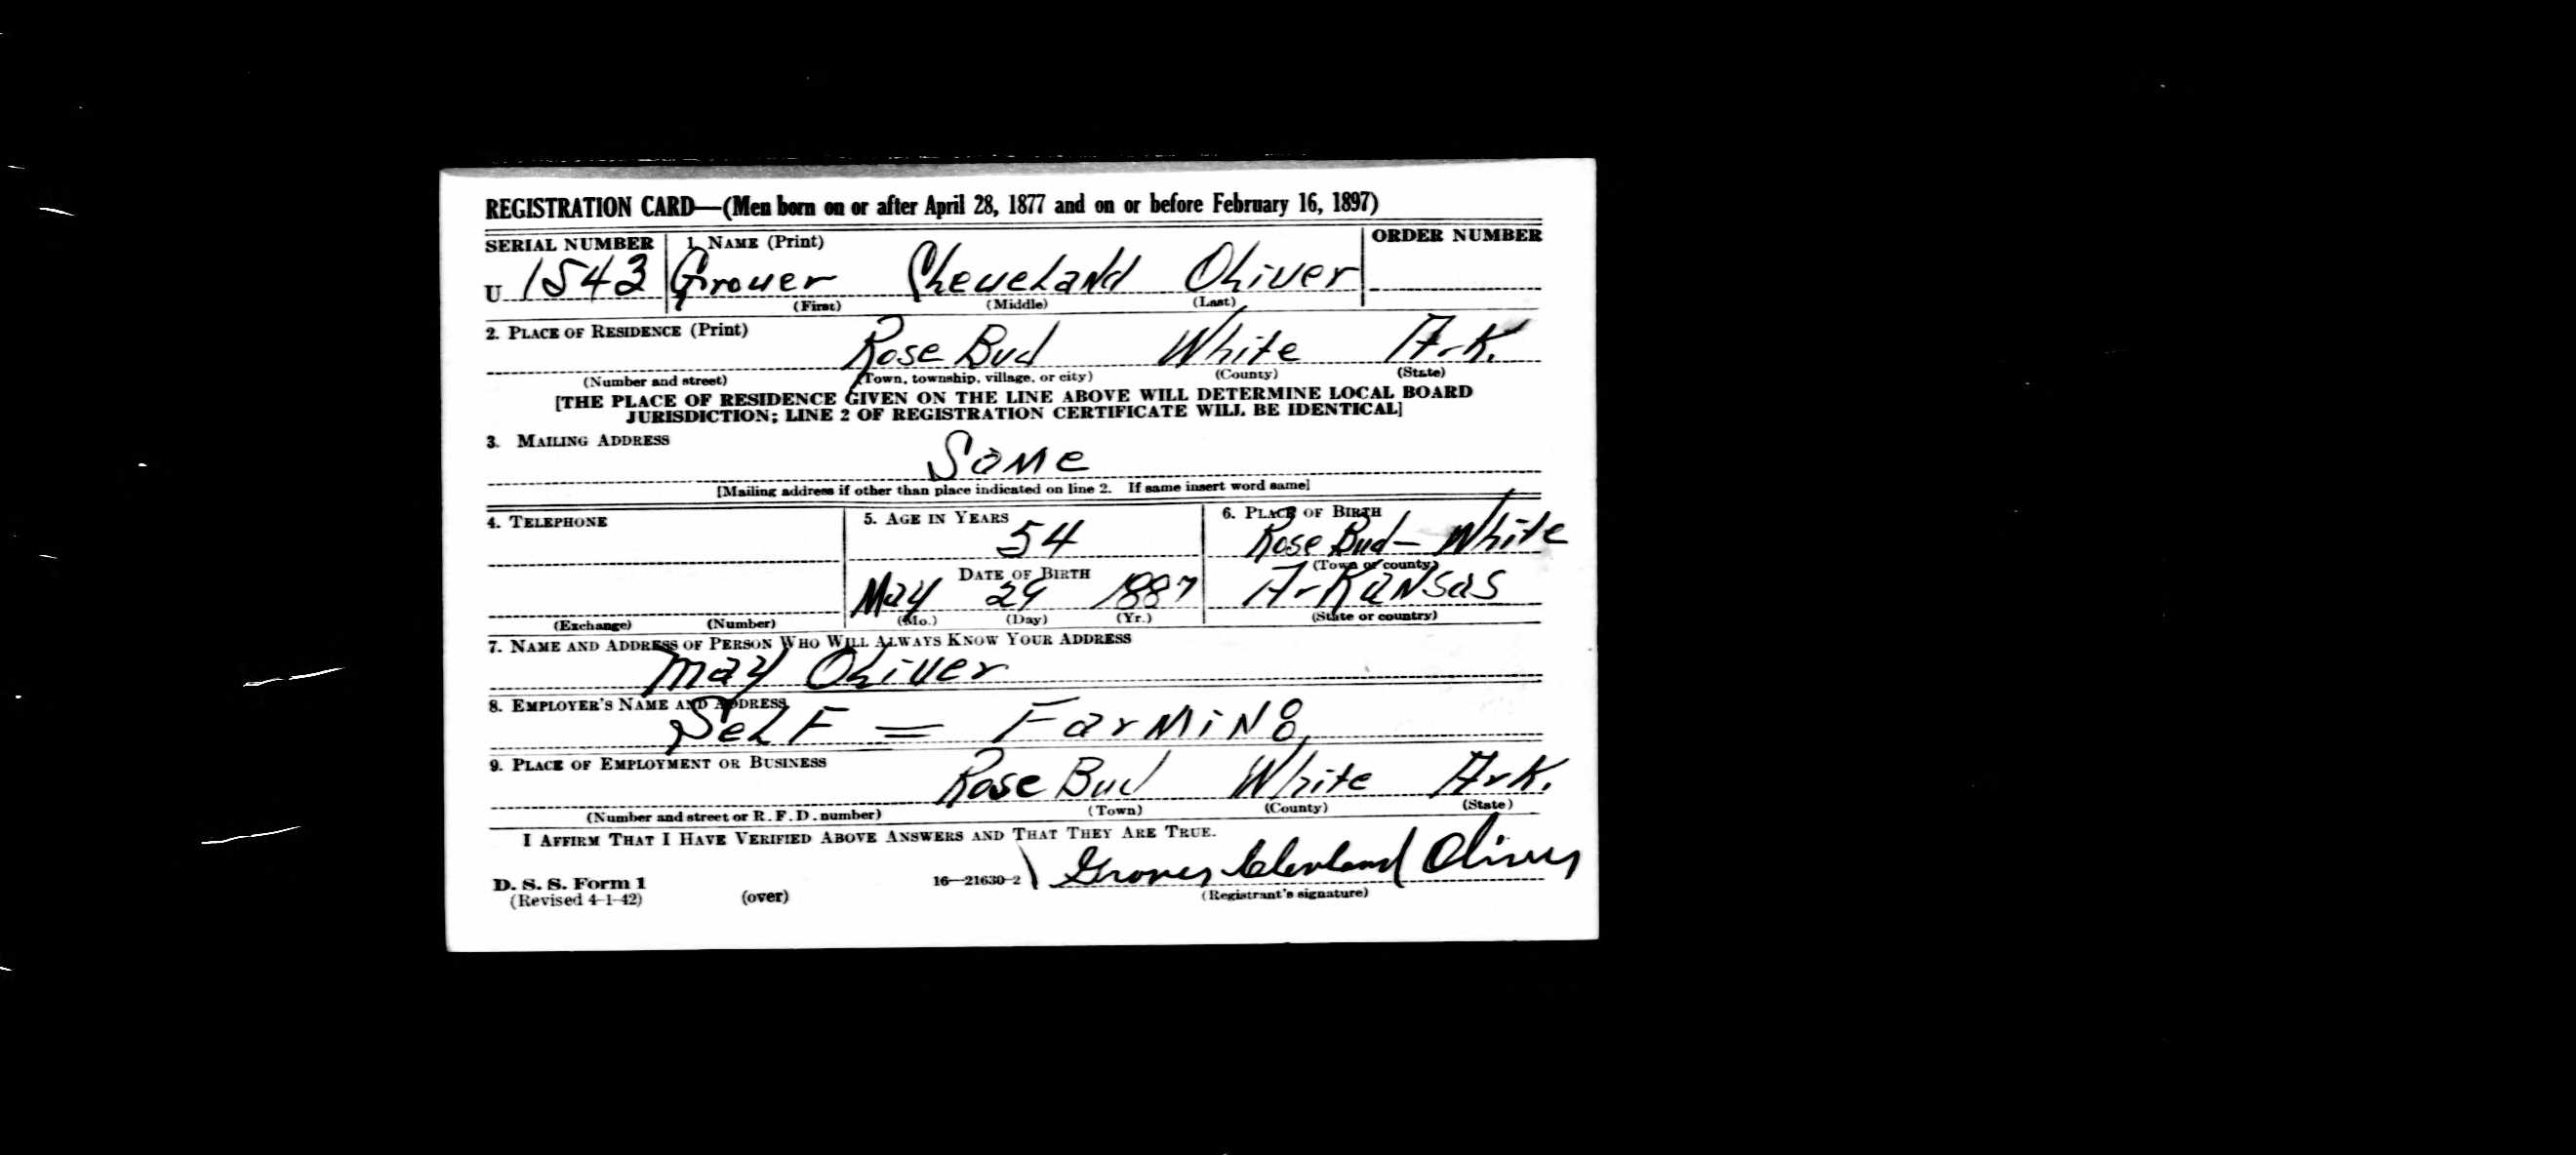 REGISTRATION CARD—(Men born on or after April 28, 1877 and on or before February 16, 1897)
SERIAL NUMBER 1. NAME (Print) ORDER NUMBER
U 1543 Grover Cleveland Oliver
(First) (Middle) (Last)
2. PLACE OF RESIDENCE (Print)
Rose Bud White Ark.
(Number and street) (Town, township, village, or city) (County) (State)
[THE PLACE OF RESIDENCE GIVEN ON THE LINE ABOVE WILL DETERMINE LOCAL BOARD
JURISDICTION; LINE 2 OF REGISTRATION CERTIFICATE WILL BE IDENTICAL]
3. MAILING ADDRESS
Same
[Mailing address if other than place indicated on line 2. If same insert word same]
4. TELEPHONE 5. AGE IN YEARS 6. PLACE OF BIRTH
54 Rose Bud - White
DATE OF BIRTH (Town or county)
May 29 1887 Arkansas
(Exchange) (Number) (Mo.) (Day) (Yr.) (State or country)
7. NAME AND ADDRESS OF PERSON WHO WILL ALWAYS KNOW YOUR ADDRESS
May Oliver
8. EMPLOYER'S NAME AND ADDRESS
Self = Farming
9. PLACE OF EMPLOYMENT OR BUSINESS
Rose Bud White Ark.
(Number and street or R. F. D. number) (Town) (County) (State)
I AFFIRM THAT I HAVE VERIFIED ABOVE ANSWERS AND THAT THEY ARE TRUE.
Grover Clevland Oliver
D. S. S. Form 1 16—21630-2 (Registrant's signature)
(Revised 4-1-42) (over)